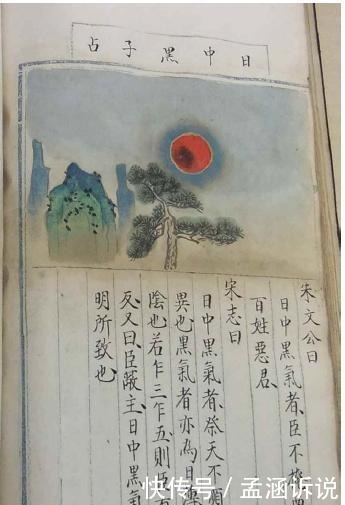 日中黑子占
朱文公曰
日中黑氣者、臣不
百姓惡君、
宋志曰
日中黑氣者、祭天不順
異也、黑氣者亦為日
陰也、若乍三乍五、則臣
死、又曰、臣蔽主、日中黑氣
明所致也、
快传号／孟涵诉说